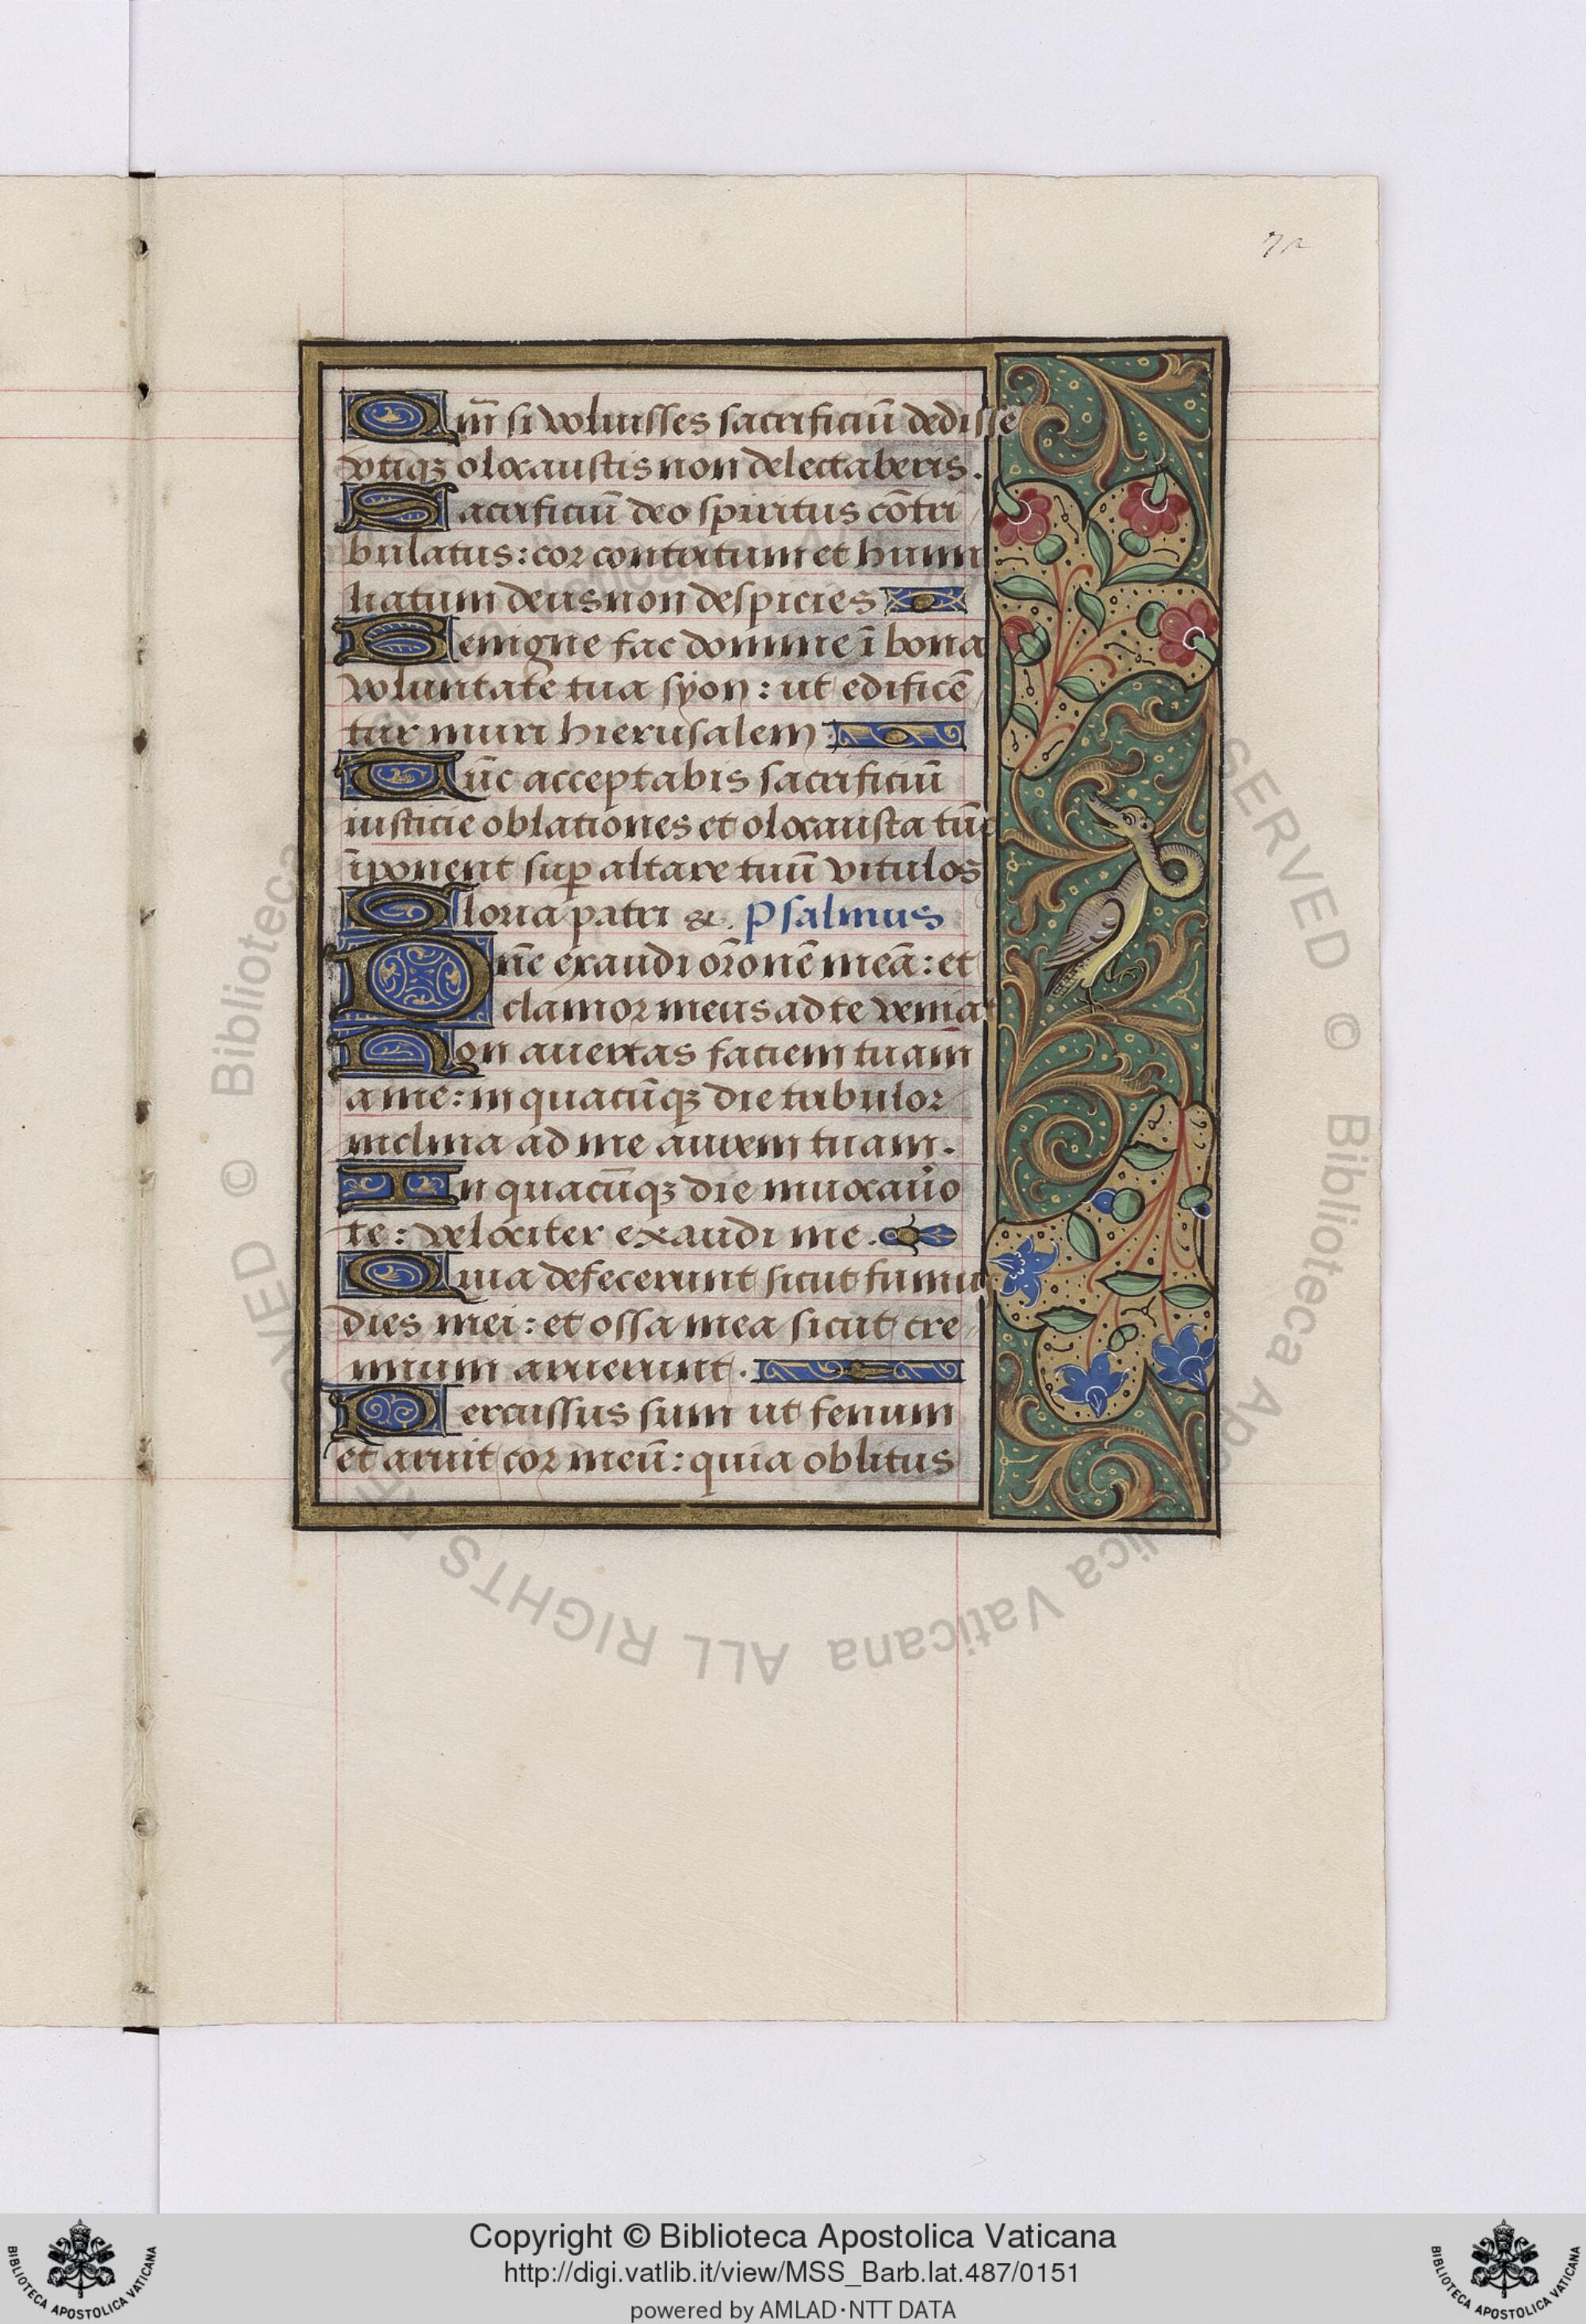 72
Qm̄ si voluisses sacrificiū dedisse
vtiqꝫ olocaustis non delectaberis.
Sacrificiū deo spiritus cōtri
bulatus: cor contritum et humi
liatum deus non despicies
Benigne fac domine ī bona
voluntate tua syon: ut edificē
tur muri hierusalem
Tūc acceptabis sacrificiū
iusticie oblationes et olocausta tūc
īponent suꝑ altare tuū vitulos
Gloria patri &c. Psalmus
Dn̄e exaudi orōnē meā: et
clamor meus ad te veniat
Non auertas faciem tuam
a me: in quacūqꝫ die tribulor
inclina ad me aurem tuam.
In quacūqꝫ die inuocau̾o
te: velociter exaudi me.
Quia defecerunt sicut fumus
dies mei: et ossa mea sicut cre
mium aruerunt.
Percussus sum ut fenum
et aruit cor meū: quia oblitus
© Biblioteca Apostolica Vaticana ALL RIGHTS RESERVED
Copyright © Biblioteca Apostolica Vaticana
http://digi.vatlib.it/view/MSS_Barb.lat.487/0151
powered by AMLAD·NTT DATA
BIBLIOTECA APOSTOLICA VATICANA
BIBLIOTECA APOSTOLICA VATICANA